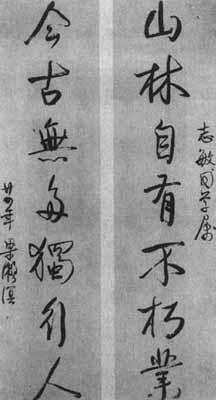 志敏同学属
山林自有不朽業
今古無多獨行人
廿四年 梁漱溟